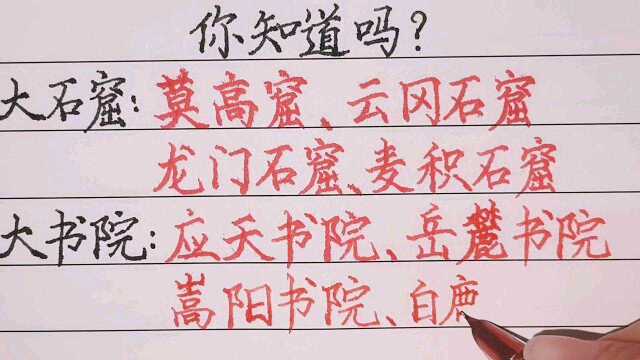 你知道吗?
大石窟:莫高窟、云冈石窟
龙门石窟、麦积石窟
大书院:应天书院、岳麓书院
嵩阳书院、白鹿